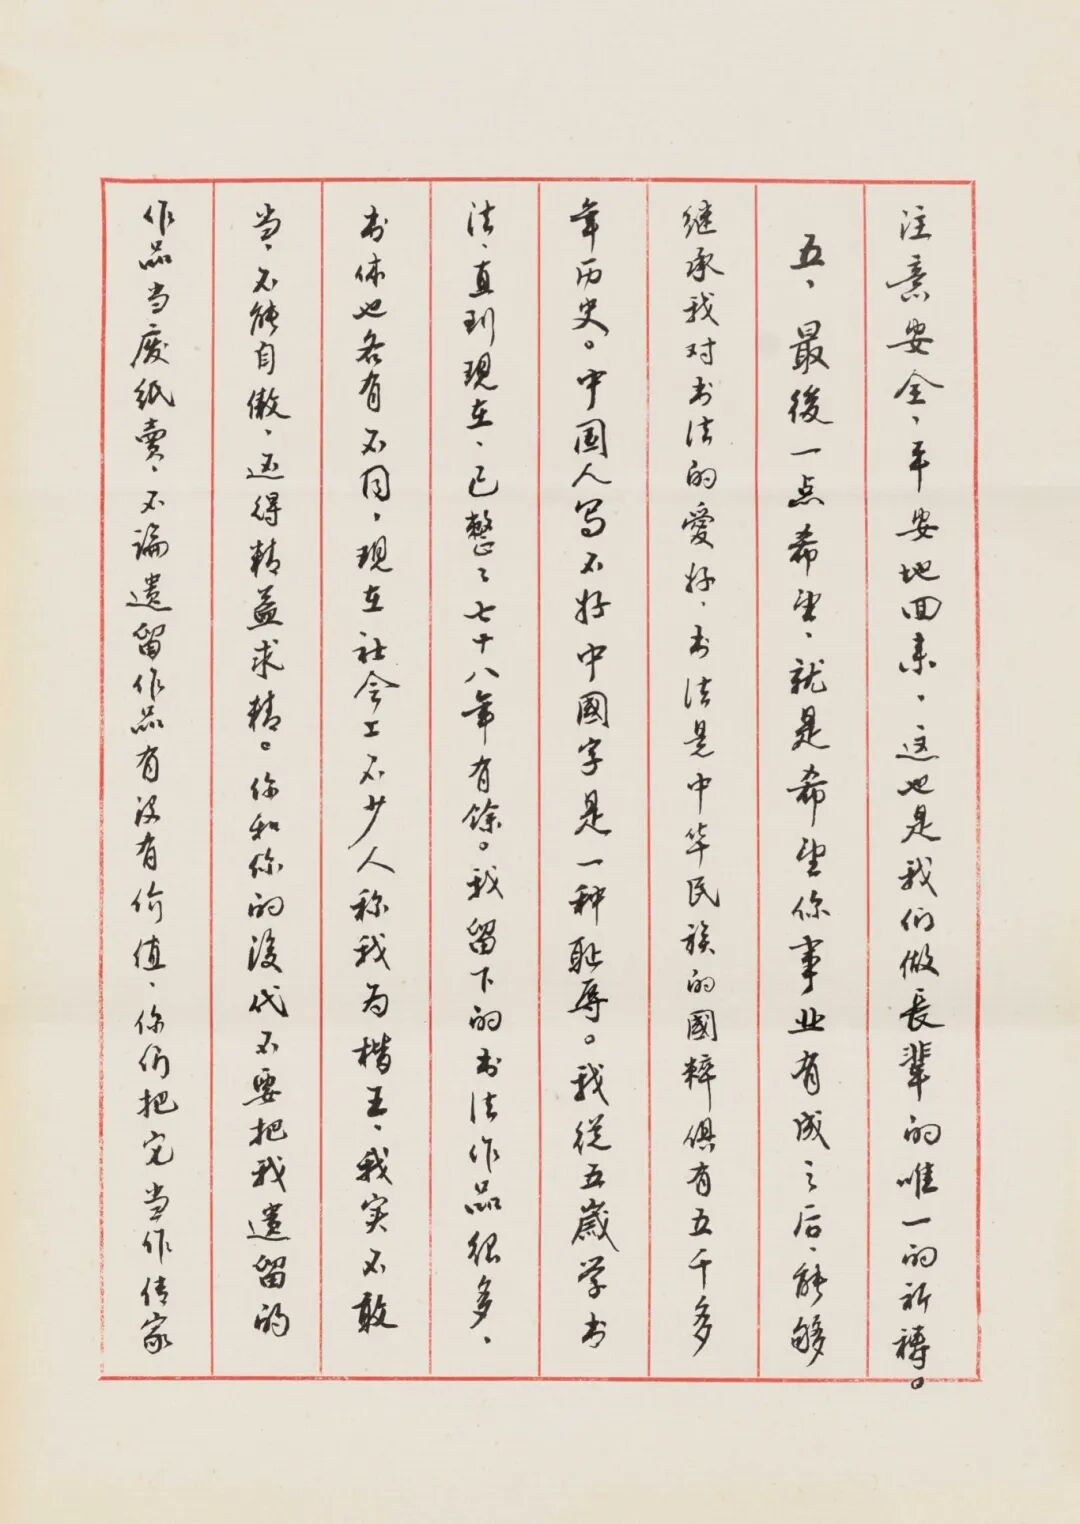 注意安全、平安地回来、这也是我们做長辈的唯一的祈祷。
五、最後一点希望、就是希望你事业有成之后、能够
继承我对书法的愛好、书法是中华民族的國粹俱有五千多
年历史。中国人写不好中國字是一种耻辱。我從五歲学书
法、直到现在、已整〻七十八年有馀。我留下的书法作品很多、
书体也各有不同、现在社会上不少人称我为楷王、我实不敢
当、不能自傲、还得精益求精。你和你的後代不要把我遗留的
作品当废纸賣、不論遗留作品有没有价值、你们把它当作传家